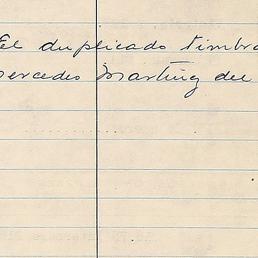 El duplicado timbra
Mercedes Martinez del